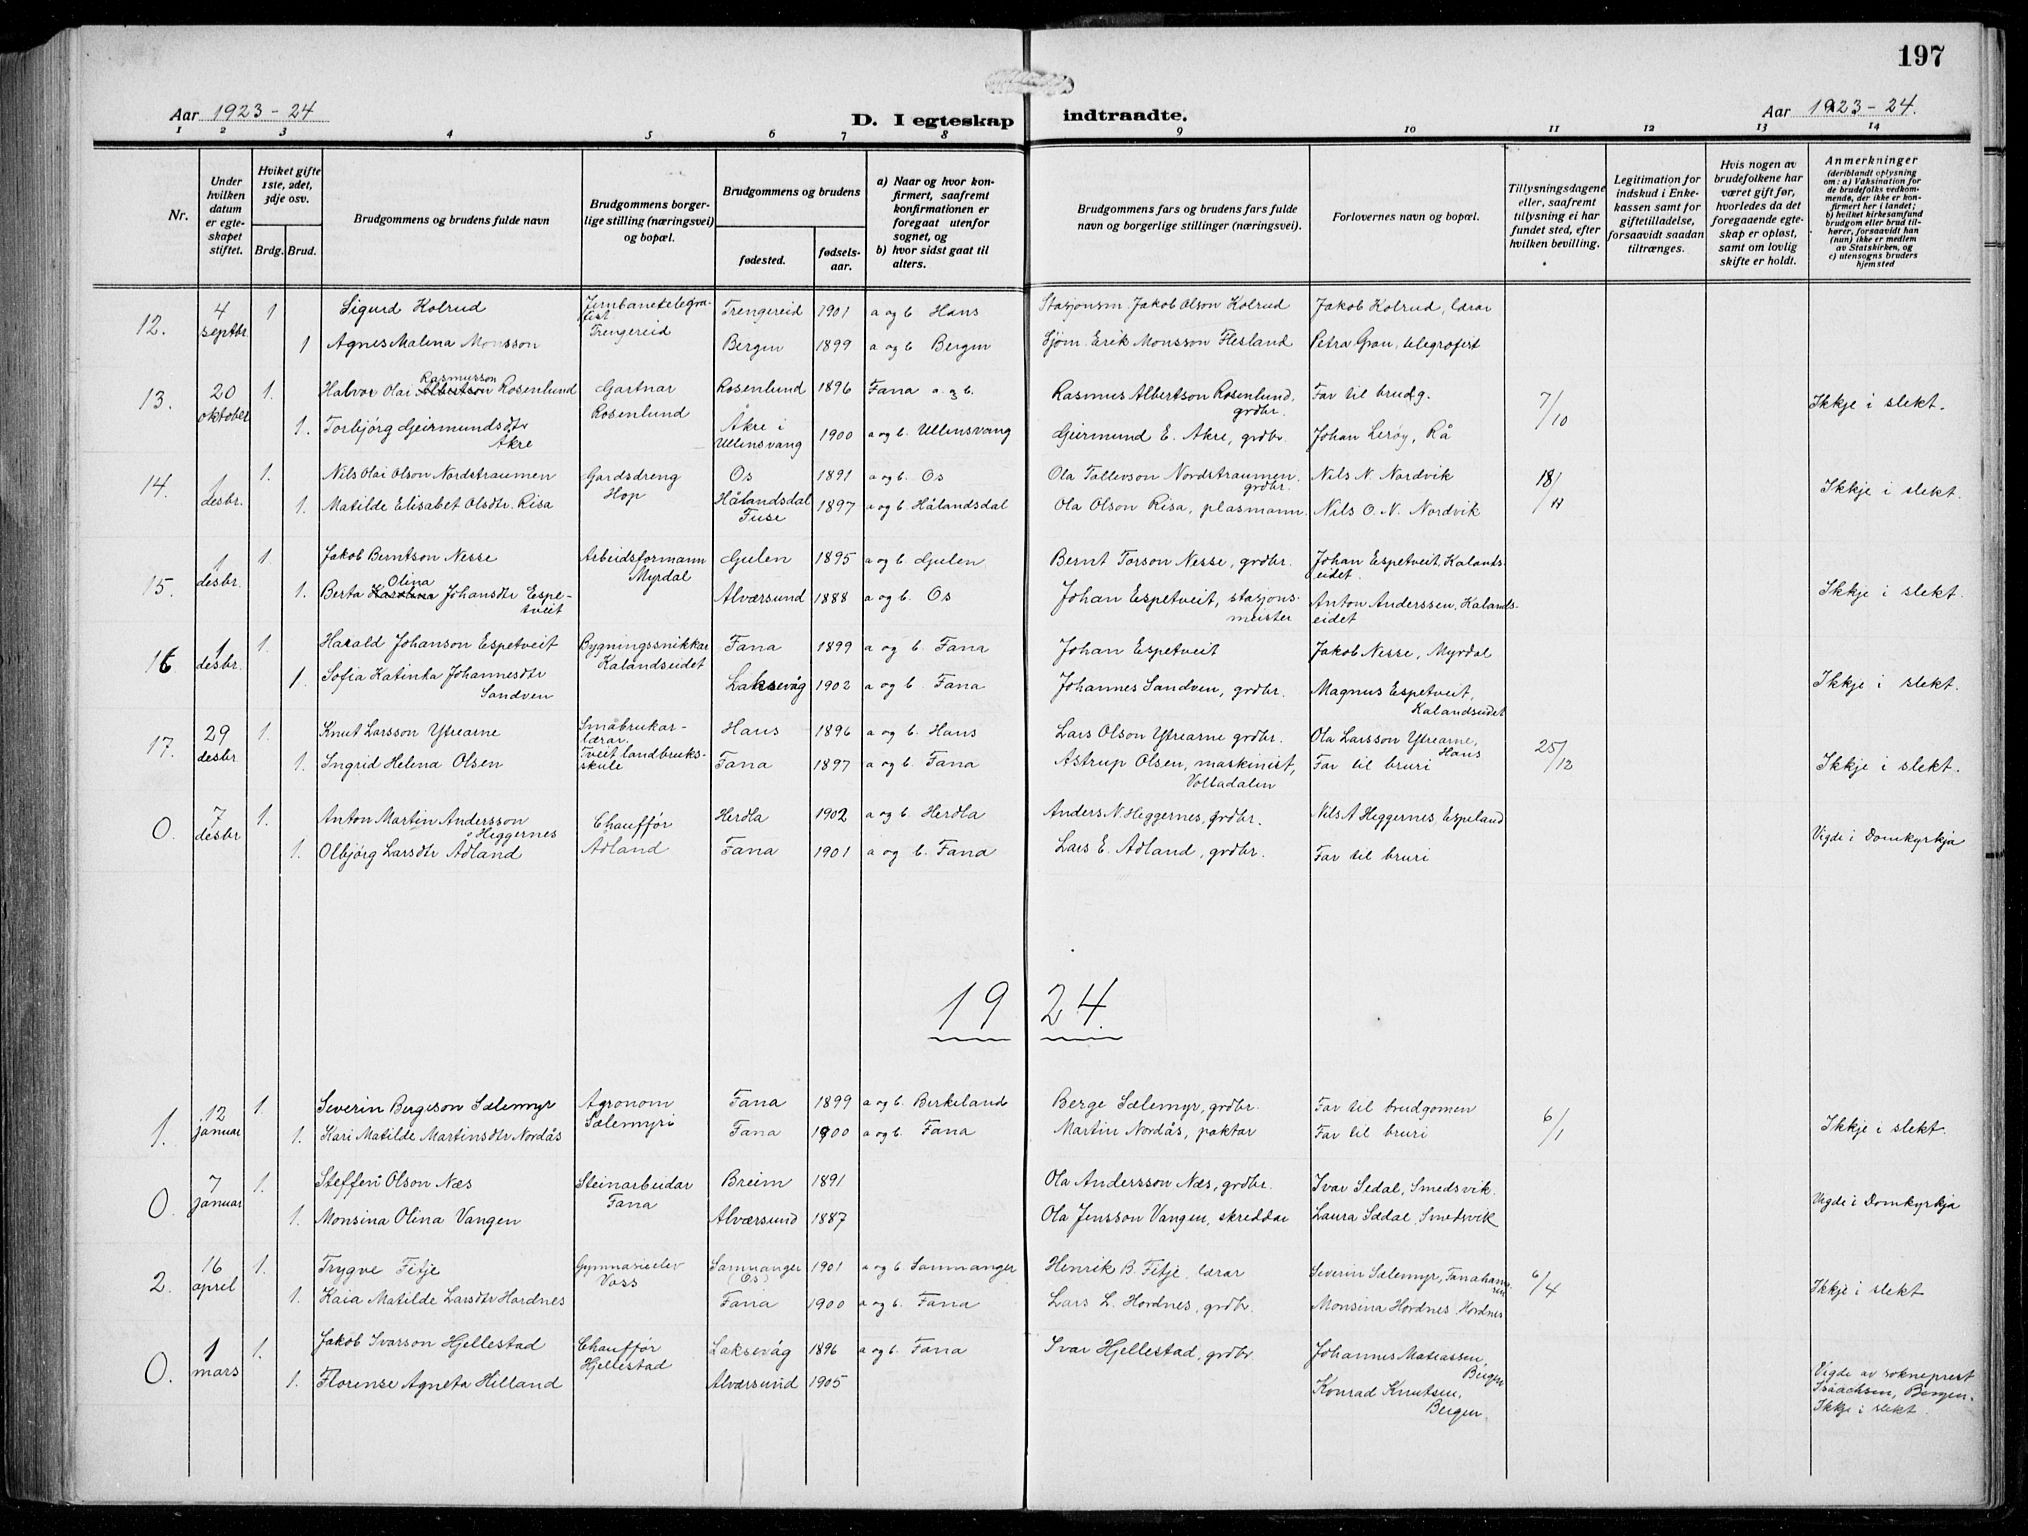 197
Aar 1923-24
D. I egteskap indtraadte.
Aar 1923-24.
1 2 3 4 5 6 7 8 9 10 11 12 13 14
Nr.
Under hvilken datum er egte-skapet stiftet.
Hviket gifte 1ste, 2det, 3dje osv.
Brdg. Brud.
Brudgommens og brudens fulde navn
Brudgommens borger-lige stilling (næringsvei) og bopæl.
Brudgommens og brudens
fødested.
fødsels-aar.
a) Naar og hvor kon-firmert, saafremt konfirmationen er foregaat utenfor sognet, og
b) hvor sidst gaat til alters.
Brudgommens fars og brudens fars fulde navn og borgerlige stillinger (næringsvei).
Forlovernes navn og bopæl.
Tillysningsdagene eller, saafremt tillysning ei har fundet sted, efter hvilken bevilling.
Legitimation for indskud i Enke-kassen samt for giftetilladelse, forsaavidt saadan tiltrænges.
Hvis nogen av brudefolkene har været gift før, hvorledes da det foregaaende egte-skap er opløst, samt om lovlig skifte er holdt.
Anmerkninger (deriblandt oplysning om: a) Vaksination for de brudefolks vedkom-mende, der ikke er kon-firmert her i landet; b) hvilket kirkesamfund brudgom eller brud til-hører, forsaavidt han (hun) ikke er medlem av Statskirken, og c) utensogns bruders hjemsted
12. 4 septbr. 1 Sigurd Kolrud Jernbanetelegra-fist Trengereid Trengereid 1901 a og b Haus Stasjonsm. Jakob Olson Kolrud Jakob Kolrud, lærar
1 Agnes Malena Monsson Bergen 1899 a og b Bergen Sjøm. Erik Monsson Flesland Petra Gran, telegrafist
13. 20 oktober 1. Halvor Olai Albertson Rasmusson Rosenlund Gartnar Rosenlund Rosenlund 1896 Fana a og b. Rasmus Albertson Rosenlund, grdbr. Far til brudg. 7/10 Ikkje i slekt.
1. Torbjørg Geirmundsdtr Åkre Åkre i Ullensvang 1900 a og b. Ullensvang Geirmund E. Åkre, grdbr. Johan Lerøy, Rå
14. 1 desbr. 1. Nils Olai Olson Nordstraumen Gardsdreng Hop Os 1891 a og b. Os Ola Tollevson Nordstraumen, grdbr. Nils N. Nordvik 18/11 Ikkje i slekt.
1. Matilde Elisabet Olsdtr. Risa Hålandsdal Fuse 1897 a og b. Hålandsdal Ola Olson Risa, plasmann. Nils O. N. Nordvik
15. 1 desbr. 1. Jakob Berntson Nesse Arbeidsformann Myrdal Gulen 1895 a og b. Gulen Bernt Torson Nesse, grdbr. Johan Espetveit, Kalands-eidet. Ikkje i slekt.
1. Berta Karolina Olina Johansdtr Espe-tveit Alværsund 1888 a og b. Os Johan Espetveit, stasjons-meister Anton Anderssen, Kalands-eidet
16 1 desbr. 1. Harald Johanson Espetveit Bygningssnikkar Kalandseidet Fana 1899 a og b. Fana Johan Espetveit Jakob Nesse, Myrdal Ikkje i slekt.
1. Sofia Katinka Johannesdtr Sandven Laksevåg 1902 a og b. Fana Johannes Sandven, grdbr. Magnus Espetveit, Kalandseidet
17. 29 desbr 1. Knut Larsson Ytrearne Småbrukar-lærar. Tveit landbruks-skule Haus 1896 a og b. Haus Lars Olson Ytrearne grdbr. Ola Larsson Ytrearne, Haus 25/12 Ikkje i slekt.
1. Ingrid Helena Olsen Fana 1897 a og b. Fana Astrup Olsen, maskinist, Volladalen Far til bruri
0. 7 desbr 1. Anton Martin Andersson Heggernes Chauffør Adland Herdla 1902 a og b. Herdla Anders N. Heggernes, grdbr. Nils A Heggernes, Espeland Vigde i Domkyrkja
1. Olbjørg Larsdtr Adland Fana 1901 a og b. Fana Lars E. Adland, grdbr. Far til bruri
1924.
1. 12 januar 1. Severin Bergeson Sælemyr Agronom Sælemyri Fana 1899 a og b. Birkeland Berge Sælemyr, grdbr. Far til brudgomen 6/1 Ikkje i slekt.
1. Kari Matilde Martinsdtr Nordås Fana 1900 a og b. Fana Martin Nordås, paktar Far til bruri
0. 7 januar 1. Steffen Olson Næs Steinarbeidar Fana Breim 1891 Ola Andersson Næs, grdbr. Ivar Sedal, Smedsvik. Vigde i Domkyrkja
1. Monsina Olina Vangen Alværsund 1887 Ola Jensson Vangen, skreddar Laura Sædal, Smedsvik
2. 16 aprel 1. Trygve Fitje Gymnasieelev Voss Samnanger (Os) 1901 a og b Samnanger Henrik B. Fitje, lærar Severin Sælemyr, Fanahamren 6/4 Ikkje i slekt
1. Kaia Matilde Larsdtr Hordnes Fana 1900 a og b. Fana Lars L. Hordnes, grdbr. Monsina Hordnes, Hordnes
0. 1 mars 1. Jakob Ivarson Hjellestad Chauffør Hjellestad Laksevåg 1896 a og b. Fana Ivar Hjellestad, grdbr. Johannes Matiassen, Bergen Vigde av sokneprest Isaachsen, Bergen. Ikkje i slekt.
1. Florense Agneta Hilland Alværsund 1905 Konrad Knutsen, Bergen.